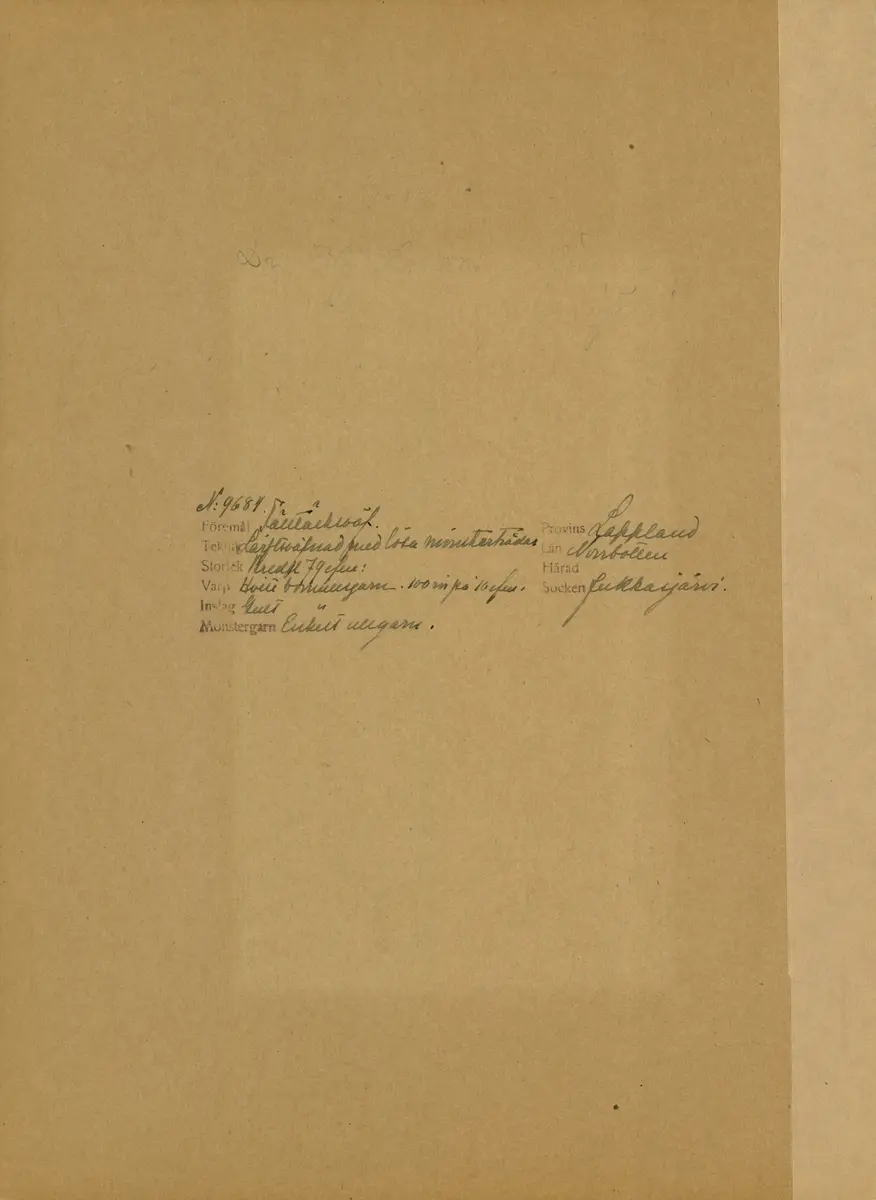 N: 9684.
Föremål Täntäckväf.
Teknik Lärftväfnad med lösa mönstertrådar
Storlek Bredd 79 cm:
Varp Hvitt bomullsgarn. 100 in på 10 cm.
Inslag Gult "
Mönstergarn Enkelt ullgarn.
Provins Lappland
Län Norrbotten
Härad
Socken Jukkasjärvi.